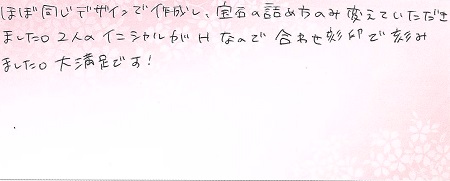 ほぼ同じデザインで作成し、宝石の詰め方のみ変えていただき
ました。2人のイニシャルがHなので合わせ刻印で刻み
ました。大満足です!